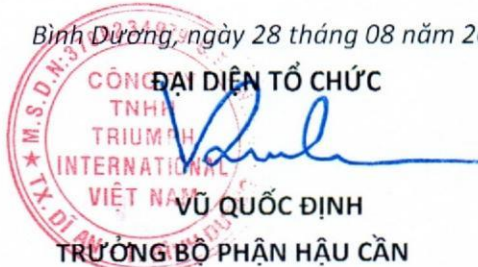 Bình Dương, ngày 28 tháng 08 năm
ĐẠI DIỆN TỔ CHỨC
CÔNG TY
TNHH
TRIUMPH
INTERNATIONAL
VIỆT NAM
VŨ QUỐC ĐỊNH
TRƯỞNG BỘ PHẬN HẬU CẦN
★ M.S.D.N:
TX. DĨ AN